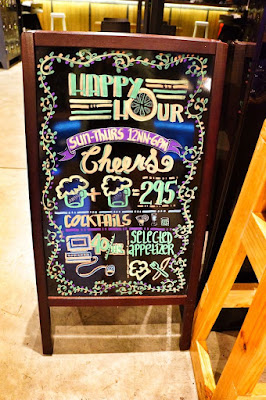 HAPPY
HOUR
SUN-THURS 12NN-6PM
Cheers
+ = 295
COCKTAILS
SELECTED
APPETIZER